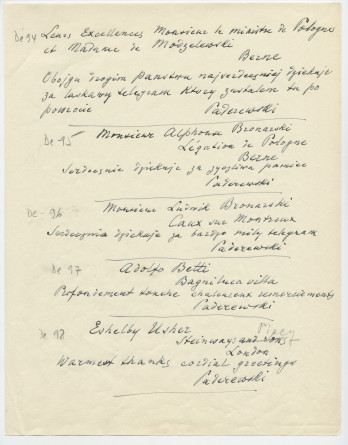 De 94 Leurs Excellences Monsieur le ministre de Pologne
et Madame de Modzelewski
Berne
Obojgu drogim państwu najserdeczniej dziękuję
za łaskawy telegram który zastałem tu po
powrocie Paderewski
De 95 Monsieur Alphonse Bronarski
Légation de Pologne
Berne
Serdecznie dziękuję za życzliwą pamięć
Paderewski
De - 96 Monsieur Ludwik Bronarski
Caux sur Montreux
Serdecznie dziękuję za bardzo miły telegram
Paderewski
De 97 Adolfo Betti
Bagnilucca villa
Profondement touché chaleureux remerciements
Paderewski
De 98 Eshelby Usher
Steinways and sons
London
Warmest thanks cordial greetings
Paderewski